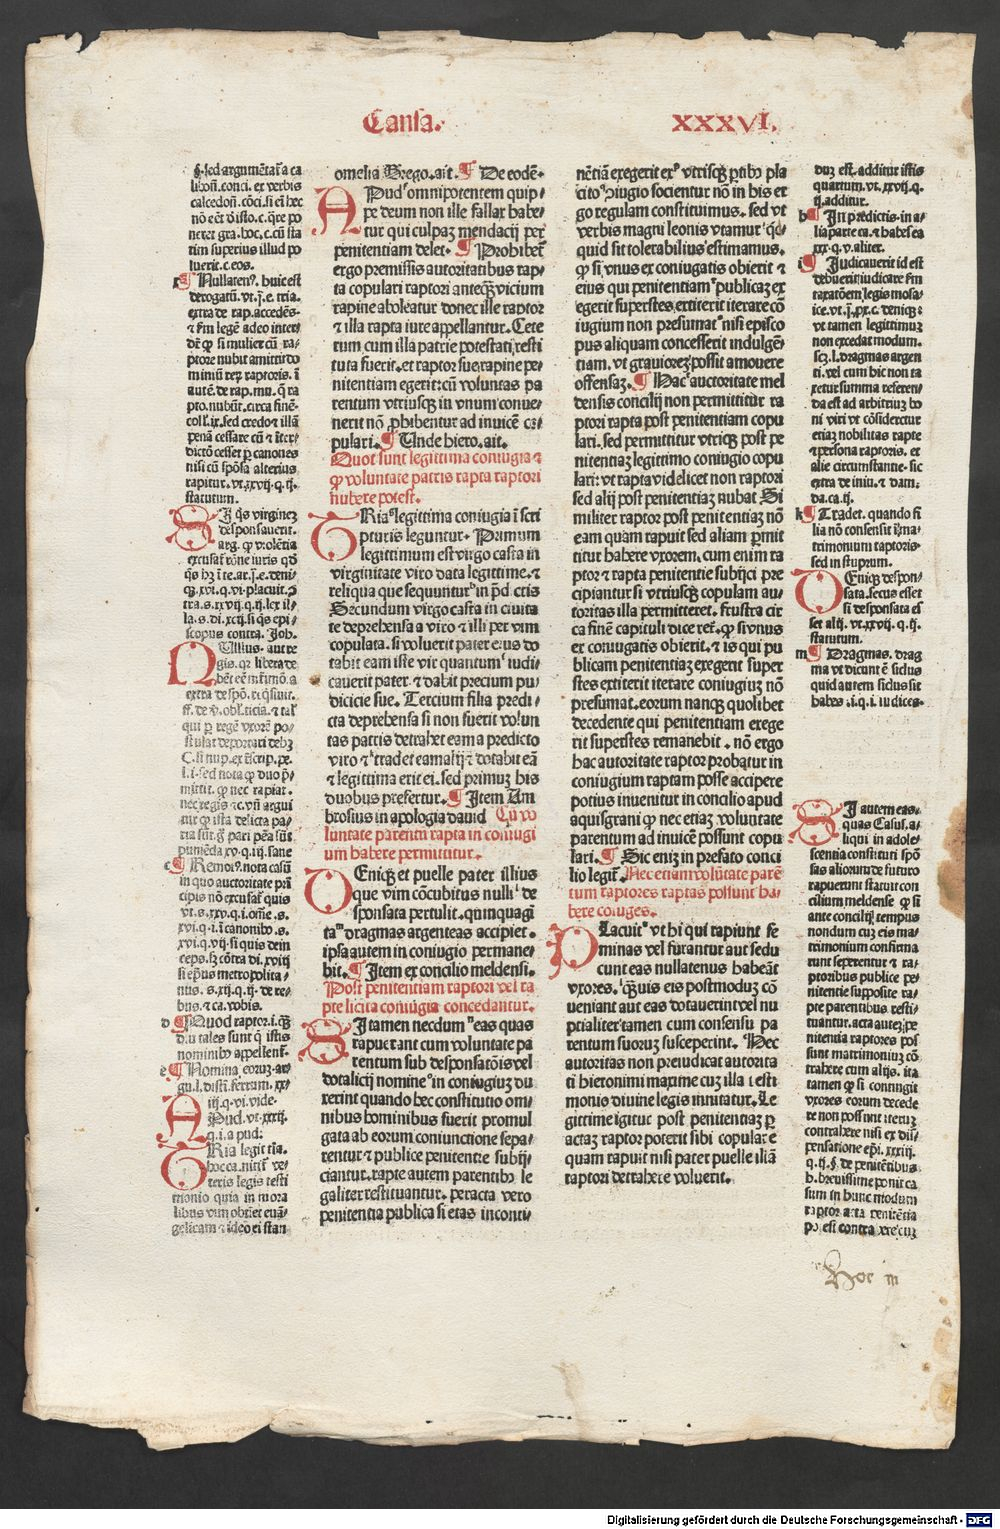 Causa.
XXXVI.
§. sed argumētat᷒ a ca
libon̄. conci. ex verbis
calcedon̄. cōci. si cū hec
nō eēt
nerer gra. hoc. c. cū sta
tim superius illud po
luerit. c. eos.
Nullaten⁹. huic est
derogatū. vt. j. e. tria.
extra de rap. accedēs.
& sm̄ legē adeo inter
dē qɜ si mulier cū ra-
ptore nubit amittit do
minū rerɜ raptoris. ī
autē. de rap. mu. q̄ ra
pto. nubūt. circa finē.
coll. ix. sed credo & illā
penā cessare cū & īter-
dictō cesset per canones
nisi cū spōsa alterius
rapitur. vt. xxvij. q. ij.
statutum.
Si q̄s virginēɜ
desponsauerit.
arg. qɜ violētia
excusat᷒ rōne iuris qd̄
Nullius. aut re
gis. qr libera de
extra de spō. reqsiuit.
Remoī. nota casū
in quo auctoritate prī
cipis nō excusat᷒ quis
vt. s. xxv. q. i. om̄e. s.
xvi. q. i. ī canonib⁹. s.
xvi. q. vij. si quis dein
ceps. sɜ cōtra di. xviij
si ep̄us metropolita-
nus. s. xij. q. ij. de re-
bus. & ca. vobis.
d ¶ Quod raptor. i. q̄ɜ
d. u tales sunt q̄ istis
nominib⁹ appellent᷒.
e ¶ Nomina eorūɜ. ar
gu. l. distī. ferrum. xx-
iij. q. vi. vide.
Apud. vt. xxij.
q. i. a pud:
Tria legit īīa.
hoc ca. nitit᷒ ve-
teris legis testi
monio quia in mora
libus vim obtinet euā-
gelicam & ideo ei stan
omelia Grego. ait. ¶ De eodē.
Apud⁷ omnipotentem quip-
pe deum non ille fallax habe-
tur qui culpaɜ mendacij per
penitentiam delet. ¶ Prohibet᷒
ergo premissis autoritatibus rap-
ta copulari raptori anteq̄ɜ vicium
rapine aboleatur donec ille raptor
& illa rapta iure appellantur. Cete
rum cum illa patrie potestati resti
tuta fuerit. et raptor sue rapine pe-
nitentiam egerit: cū voluntas pa
rentum vtriusqɜ in vnum conue-
nerit nō ꝓhibentur ad inuicē co-
pulari. ¶ Unde hiero. ait.
Quot sunt legittima coniugia &
qɜ voluntate patris rapta raptori
nubere potest.
Tria⁸ legittima coniugia ī scri
pturis leguntur. Primum
legittimum est virgo casta in
virginitate viro data legittime. &
reliqua que sequuntur⁷ in p̄d ctis
Secundum virgo casta in ciuita
te deprehensa a viro & illi per vim
copulata. si voluerit pater eius do
tabit eam iste vir quantum⁷ iudi-
cauerit pater. & dabit precium pu-
dicicie sue. Tercium filia predi-
cta deprehensa si non fuerit volun
tas patris detrahet eam a predicto
viro & tradet eam alij & dotabit eā
& legittima erit ei. sed primuɜ his
duobus prefertur. ¶ Item Am
brosius in apologia dauid Cū vo
luntate parentū rapta in coniugi
um habere permittitur.
Deniqɜ et puelle pater illius
que vim cōcubitus nulli de
sponsata pertulit. quinquagī
ta dragmas argenteas accipiet.
ipsa autem in coniugio permane-
bit. ¶ Item ex concilio meldensi.
Post penitentiam raptori vel ra
pte licita coniugia concedantur.
Si tamen necdum eas quas
rapuerant cum voluntate pa
rentum sub desponsatōis vel
dotalicij nomine in coniugiuɜ du
xerint quando hec constitutio om-
nibus hominibus fuerit promul
gata ab eorum coniunctione sepa-
rentur & publice penitentie subij-
ciantur. rapte autem parentib⁹ le
galiter restituantur. peracta vero
penitentia publica si etas inconti-
nētiā exegerit ex vtrisqɜ ꝑtib⁹ pla
cito ꝯiugio socientur nō in his er
go regulam constituimus. sed vt
verbis magni leonis vtamur qd̄-
quid sit tolerabilius estimamus.
qɜ si vnus ex coniugatis obierit &
eius qui penitentiam publicaɜ ex
egerit superstes extiterit iterare cō
iugium non presumat nisi episco
pus aliquam concesserit indulgē-
tiam. vt grauioreɜ possit amouere
offensaɜ. ¶ Hac auctoritate mel
densis concilij non permittitur ra
ptori rapta post penitentiam copu
lari. sed permittitur vtriqɜ post pe
nitentiaɜ legittimo coniugio copu
lari: vt rapta videlicet non raptori
sed alij post penitentiaɜ nubat Si
militer raptor post penitentiaɜ nō
eam quam rapuit sed aliam ꝑmit
titur habere vxorem. cum enim ra
ptor & rapta penitentie subijci pre
cipiantur si vtriusqɜ copulam au-
toritas illa permitteret. frustra cir
ca finē capituli diceret. qɜ si vnus
ex coniugatis obierit. & is qui pu
blicam penitentiaɜ exegerit super
stes extiterit iterare coniugiuɜ nō
presumat. eorum nanqɜ quolibet
decedente qui penitentiam exege
rit superstes remanebit. nō ergo
hac autoritate raptor probatur in
coniugium raptam posse accipere
potius inuenitur in concilio apud
aquisgrani qɜ nec etiaɜ voluntate
parentum ad inuicē possunt copu
lari. ¶ Sic eniɜ in prefato conci
lio legit᷒. Nec etiam volūtate parē
tum raptores raptas possunt ha-
bere coiuges.
Placuit vt hi qui rapiunt fe
minas vel furantur aut sedu
cunt eas nullatenus habeāt
vxores. q̄ɜuis eis postmoduɜ cō
ueniant aut eas dotauerint vel nu
ptialiter tamen cum consensu pa
rentum suoruɜ susceperint. Hec
autoritas non preiudicat autorita
ti hieronimi maxime cuɜ illa testi
monio diuine legis innitatur. Le
gittime igitur post penitentiaɜ ꝑ
actaɜ raptor poterit sibi copulare
quam rapuit nisi pater puelle illā
raptori detrahere voluerit.
duɜ est. additur istis
quartum. vt. xxvij. q.
ij. additur.
h ¶ In predictis. in a-
lia parte ca. & habes ea
xx. q. v. aliter.
i ¶ Judicauerit id est
debuerit iudicare sm̄
taxatōem legis mosa-
ice. vt. j. px. c. deniqɜ:
vt tamen legittimuɜ
non excedat modum.
scɜ. l. dragmas argen
ti. vel cum hic non ta
xetur summa referen-
da est ad arbitriuɜ bo
ni viri vt cōsideretur
etiaɜ nobilitas rapte
& persona raptoris. et
alie circumstantie. sic
extra de iniu. & dam.
da. ca. ij.
k ¶ Tradet. quando fi
lia nō consensit ī ma-
trimonium raptoris.
sed in stuprum.
Deniqɜ despon-
sata. secus esset
si desponsata es
set alij. vt. xxvij. q. ij.
statutum.
m ¶ Dragmas. drag
ma vt dicunt ē siclus
quid autem siclus sit
habes. i. q. i. iudices.
Si autem eas.
quas Casus. a-
liqui in adole-
scentia constituti spō
sas aliorum de futuro
rapuerunt statuit con
cilium meldense qɜ si
ante concilijɜ tempus
nondum cuɜ eis ma-
trimonium confirma
runt seperentur & ra-
ptoribus publice pe-
nitentie suppositis ra-
pte parentibus resti-
tuantur. acta auteɜ pe
nitentia raptores pos
sunt matrimoniuɜ cō
trahere cum alijs. ita
tamen qɜ si contingit
vxores eorum decede
re non possunt iteruɜ
contrahere nisi ex dis-
pensatione ep̄i. xxxiij.
q. ij. §. de penitētibus
h. breuissime ponit ca
sum in hunc modum
raptor acta penitētia
Hoc m
Digitalisierung gefördert durch die Deutsche Forschungsgemeinschaft - DFG